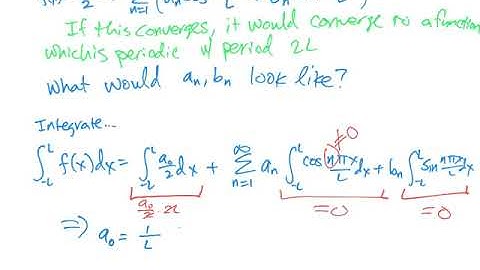 a₀/2 + ∑ₙ₌₁ (aₙcos
If this converges, it would converge to a function
which is periodic w/ period 2L
What would aₙ, bₙ look like?
Integrate...
≠0
∫₋L^L f(x)dx = ∫₋L^L a₀/2 dx + ∑ₙ₌₁^∞ aₙ ∫₋L^L cos nπx/L dx + bₙ ∫₋L^L sin nπx/L dx
a₀/2 · 2L =0 =0
⇒ a₀ = 1/L